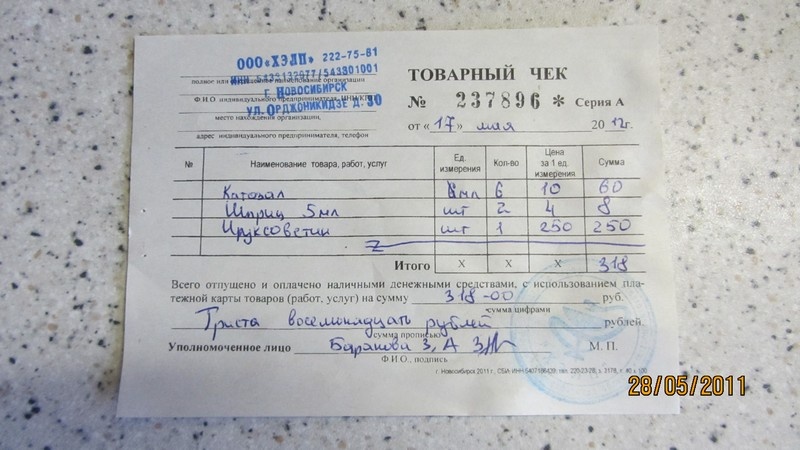 ООО «ХЭЛП» 222-75-81
полное или наименование организации
ИНН 5433132977/543301001
Г НОВОСИБИРСК
Ф.И.О. индивидуального предпринимателя, ИНН/КПП
УЛ.ОРДЖОНИКИДЗЕ Д. 30
место нахождения организации,
адрес индивидуального предпринимателя, телефон
ТОВАРНЫЙ ЧЕК
№ 237896 * Серия А
от «17» мая 2012г.
№ Наименование товара, работ, услуг Ед. измерения Кол-во Цена за 1 ед. измерения Сумма
Катозал мл 6 10 60
Шприц 5мл шт 2 4 8
Ируксоветин шт 1 250 250
Итого х х х 318
Всего отпущено и оплачено наличными денежными средствами, с использованием пла-
тежной карты товаров (работ, услуг) на сумму 318-00 руб.
сумма цифрами
Триста восемнадцать рублей рублей.
сумма прописью
Уполномоченное лицо З, А М. П.
Ф.И.О., подпись
г. Новосибирск 2011 г., СБИ
28/05/2011